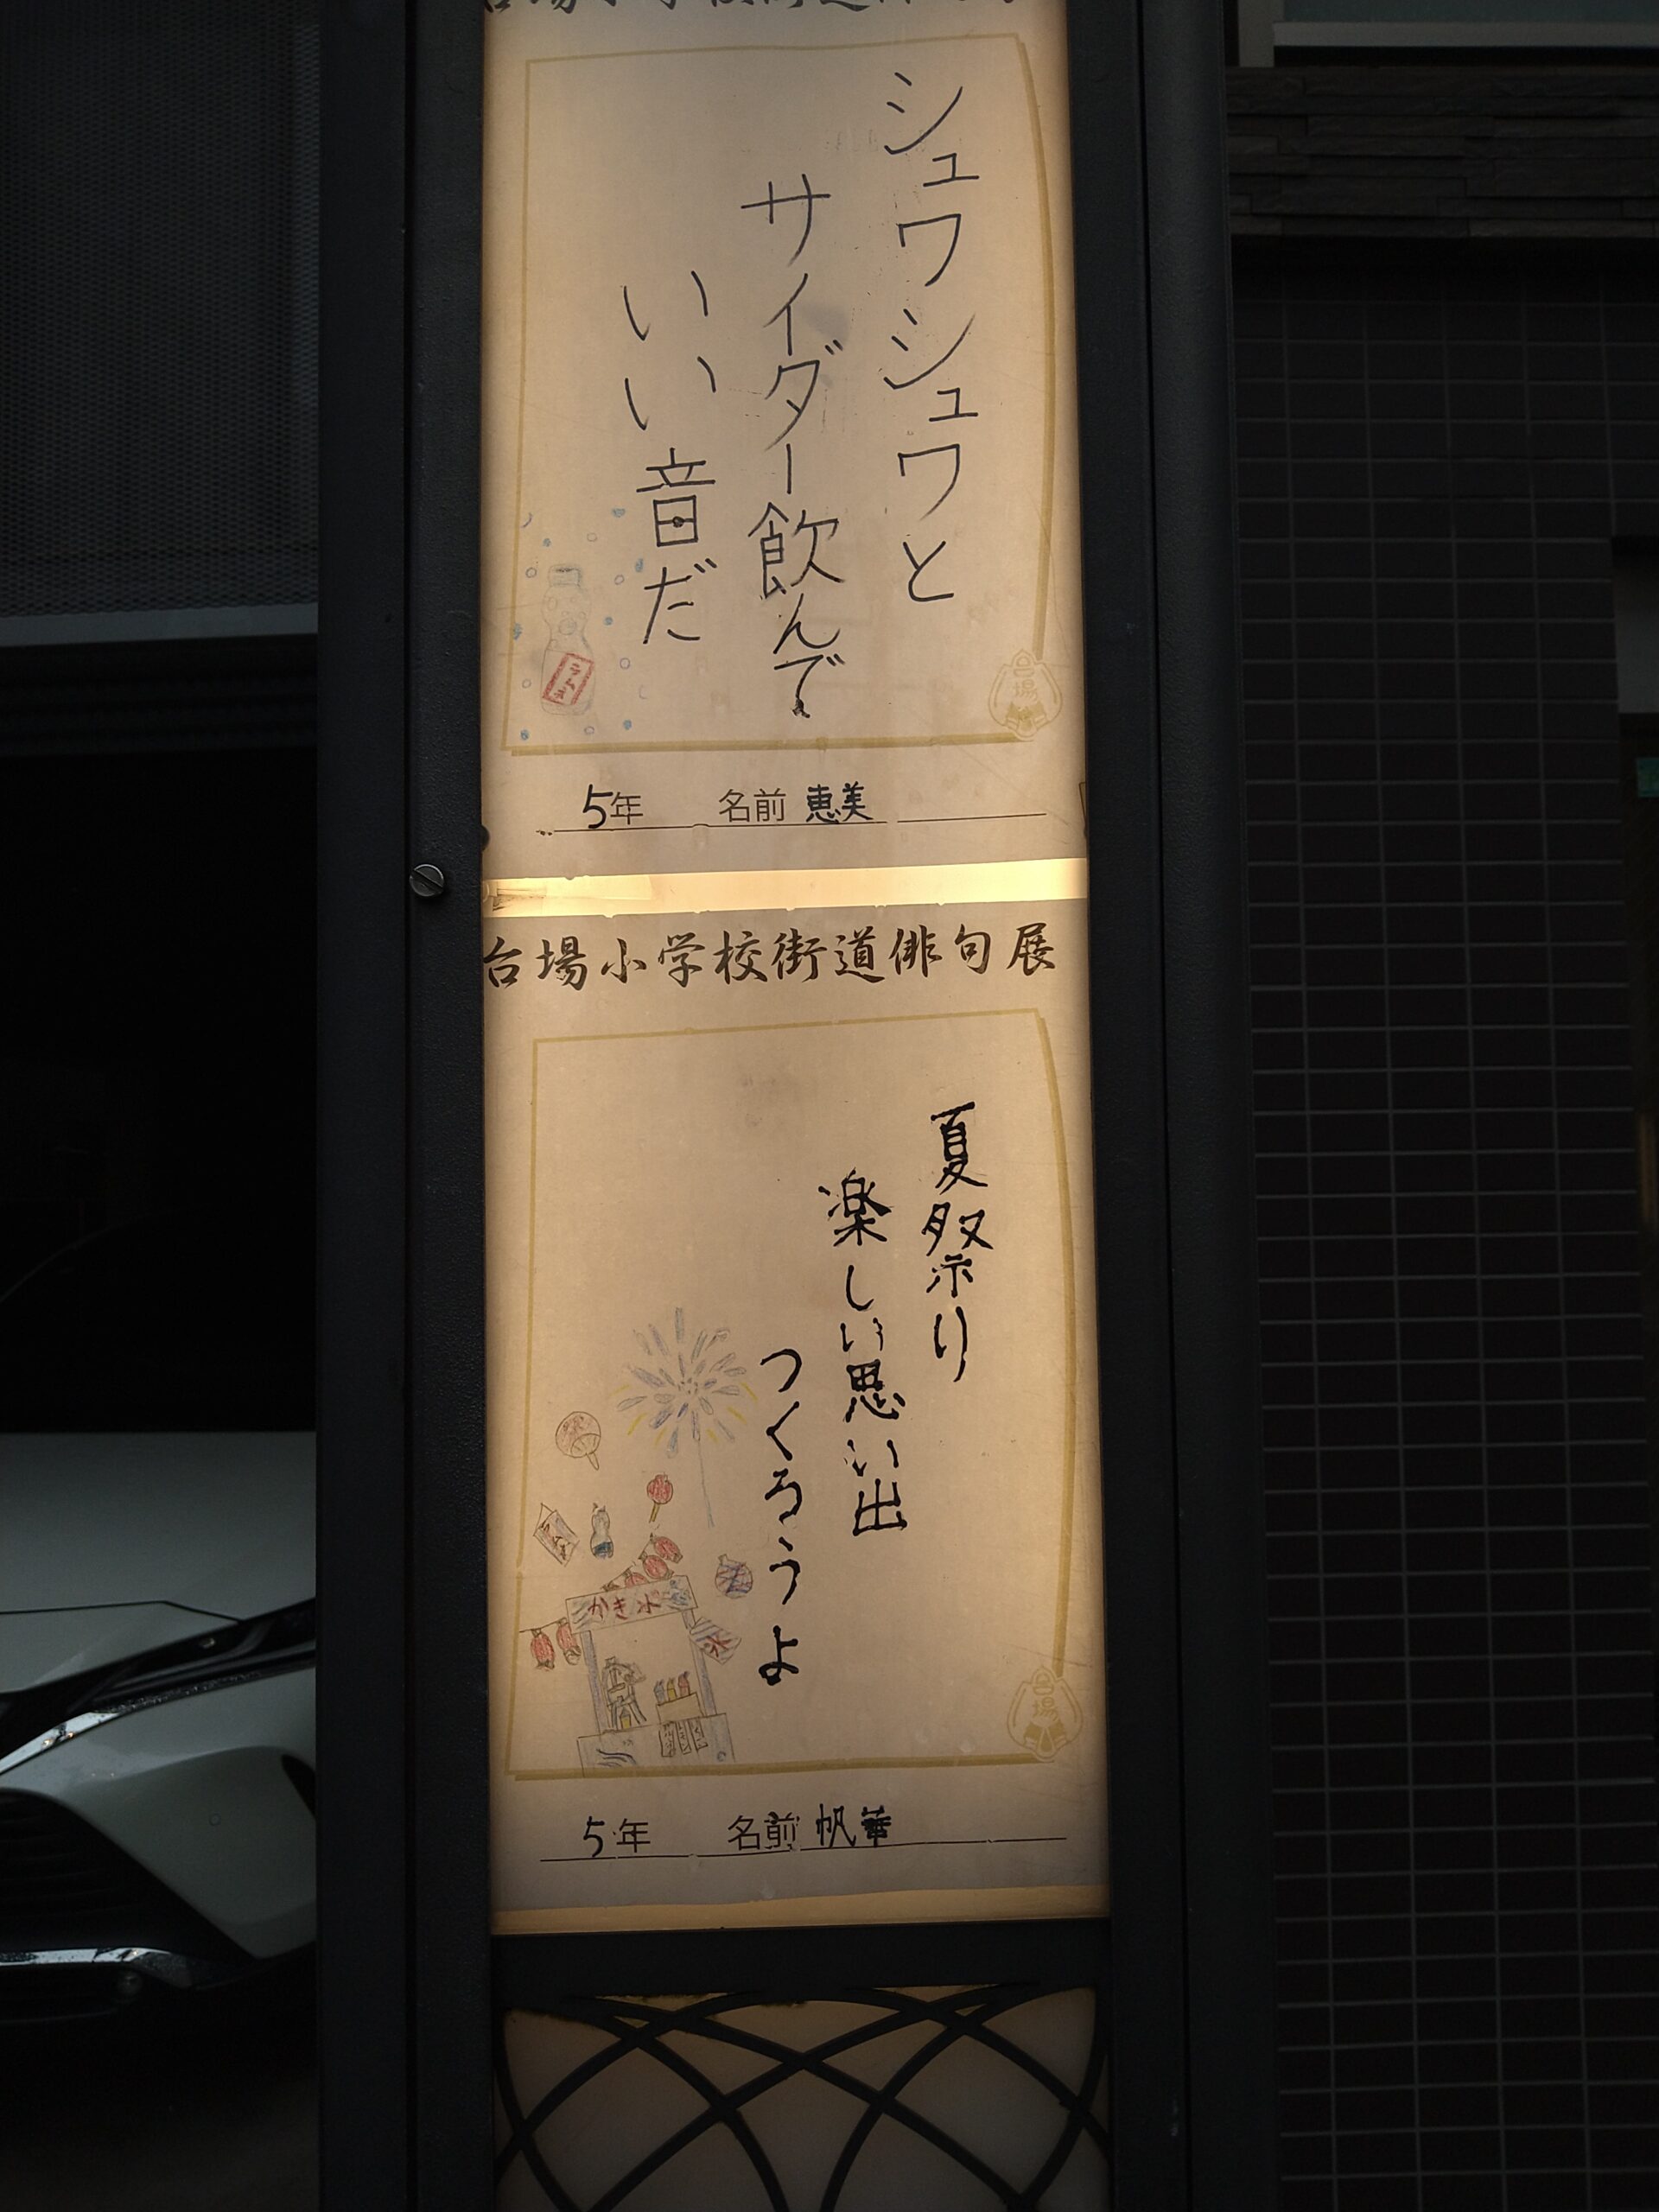 シュワシュワと
サイダー飲んで
いい音だ
5年 名前 恵美
台場小学校街道俳句展
夏祭り
楽しい思い出
つくろうよ
かき氷
氷
台場
5年 名前 帆華